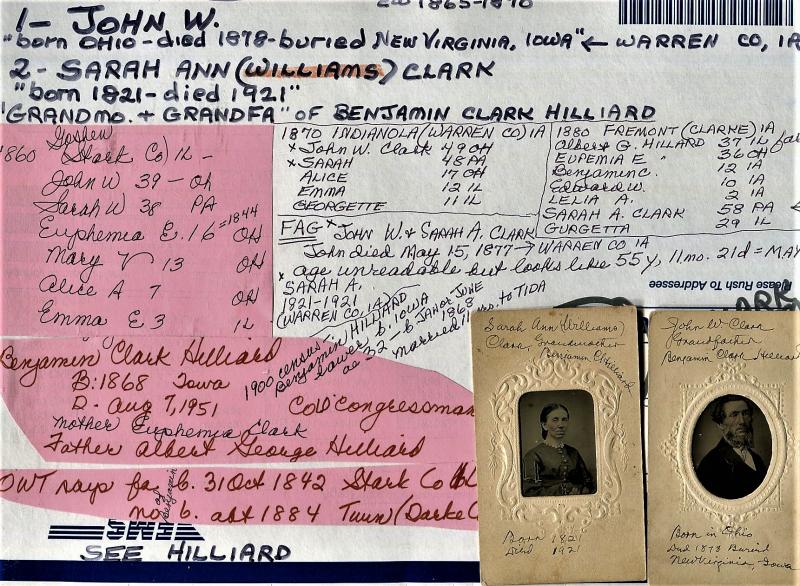 1865-1870
1- JOHN W.
"born OHIO - died 1878 - buried NEW VIRGINIA, IOWA" ← WARREN CO, IA
2 - SARAH ANN (WILLIAMS) CLARK
"born 1821 - died 1921"
"GRANDMO. + GRANDFA" OF BENJAMIN CLARK HILLIARD
Goshen
1860 Stark Co) IL -
John W 39 - OH
Sarah W 38 PA
Euphemia E. 16 =1844 OH
Mary V 13 OH
Alice A 7 OH
Emma E 3 IL
1870 INDIANOLA (WARREN CO) IA
x John W. Clark 49 OH
x SARAH 48 PA
ALICE 17 OH
EMMA 12 IL
GEORGETTE 11 IL
1880 FREMONT (CLARKE) IA
Albert G. HILLARD 37 IL
EUPEMIA E " 36 OH
BENJAMIN C. 12 IA
Edward W. 10 IA
LELIA A. 2 IA
SARAH A. CLARK 58 PA
GURGETTA 29 IL
FAG x JOHN W. & SARAH A. CLARK
John died May 15, 1877 → WARREN CO IA
age unreadable but looks like 55y, 11mo. 21d = MAY
x SARAH A.
1821-1921
(WARREN CO, IA)
1900 census, HILLIARD
Benjamin b. Iowa
lawer b. JAN or JUNE
ae 32 - b 1868
married 11 mo. to TIDA
Please Rush To Addressee
Benjamin Clark Hilliard
B: 1868 Iowa
D - Aug 7, 1951 COLO Congressman
mother Euphemia Clark
Father Albert George Hilliard
OWT says fa of Benjamin b. 31 Oct 1842 Stark Co
mo b. abt 1884 Twin (Darke C
SEE HILLIARD
Sarah Ann (Williams)
Clark, Grandmother
Benjamin C Hilliard
Born 1821
Died 1921
John W Clark
Grandfather
Benjamin Clark Hilliard
Born in Ohio
Died 1878 Buried
New Virginia, Iowa